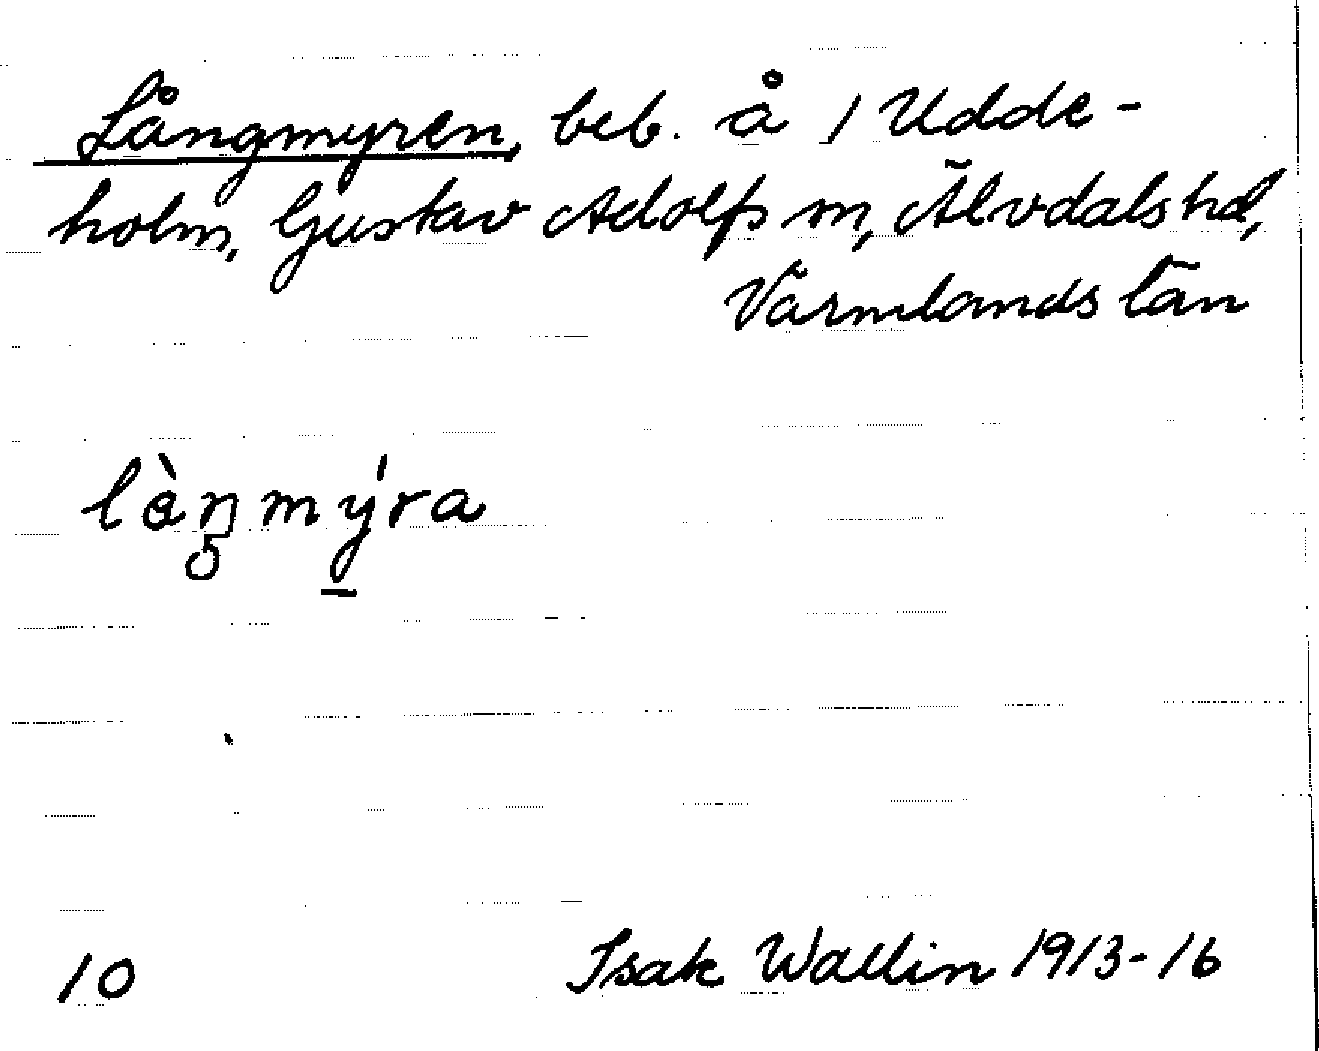 Långmyren, beb. å 1 Udde-
holm, Gustav Adolfs m, Älvdals hd,
Värmlands län
làŋmýra
10
Isak Wallin 1913-16